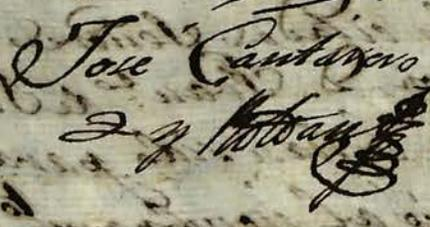 Jose Cantarero
y Roldan